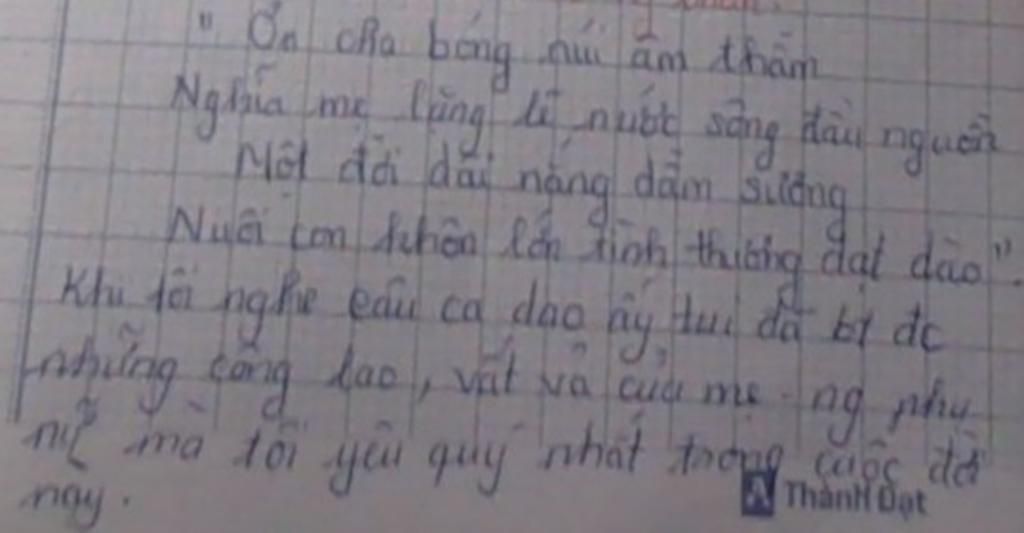 " Ơn cha bóng núi âm thầm
Nghĩa mẹ lặng lẽ nước sông đầu nguồn
Một đời dãi nắng dầm sương
Nuôi con khôn lớn tình thương dạt dào".
Khi tôi nghe câu ca dao ấy tui đã bt đc
những công lao, vất vả của mẹ - ng phụ
nữ mà tôi yêu quý nhất trong cuộc đời
nay.
Thành Đạt